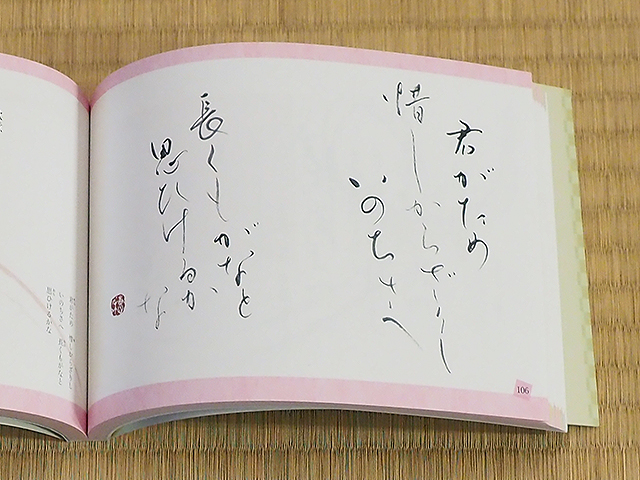 君がため
惜しからざりし
いのちさへ
長くもがなと
思ひけるかな
106